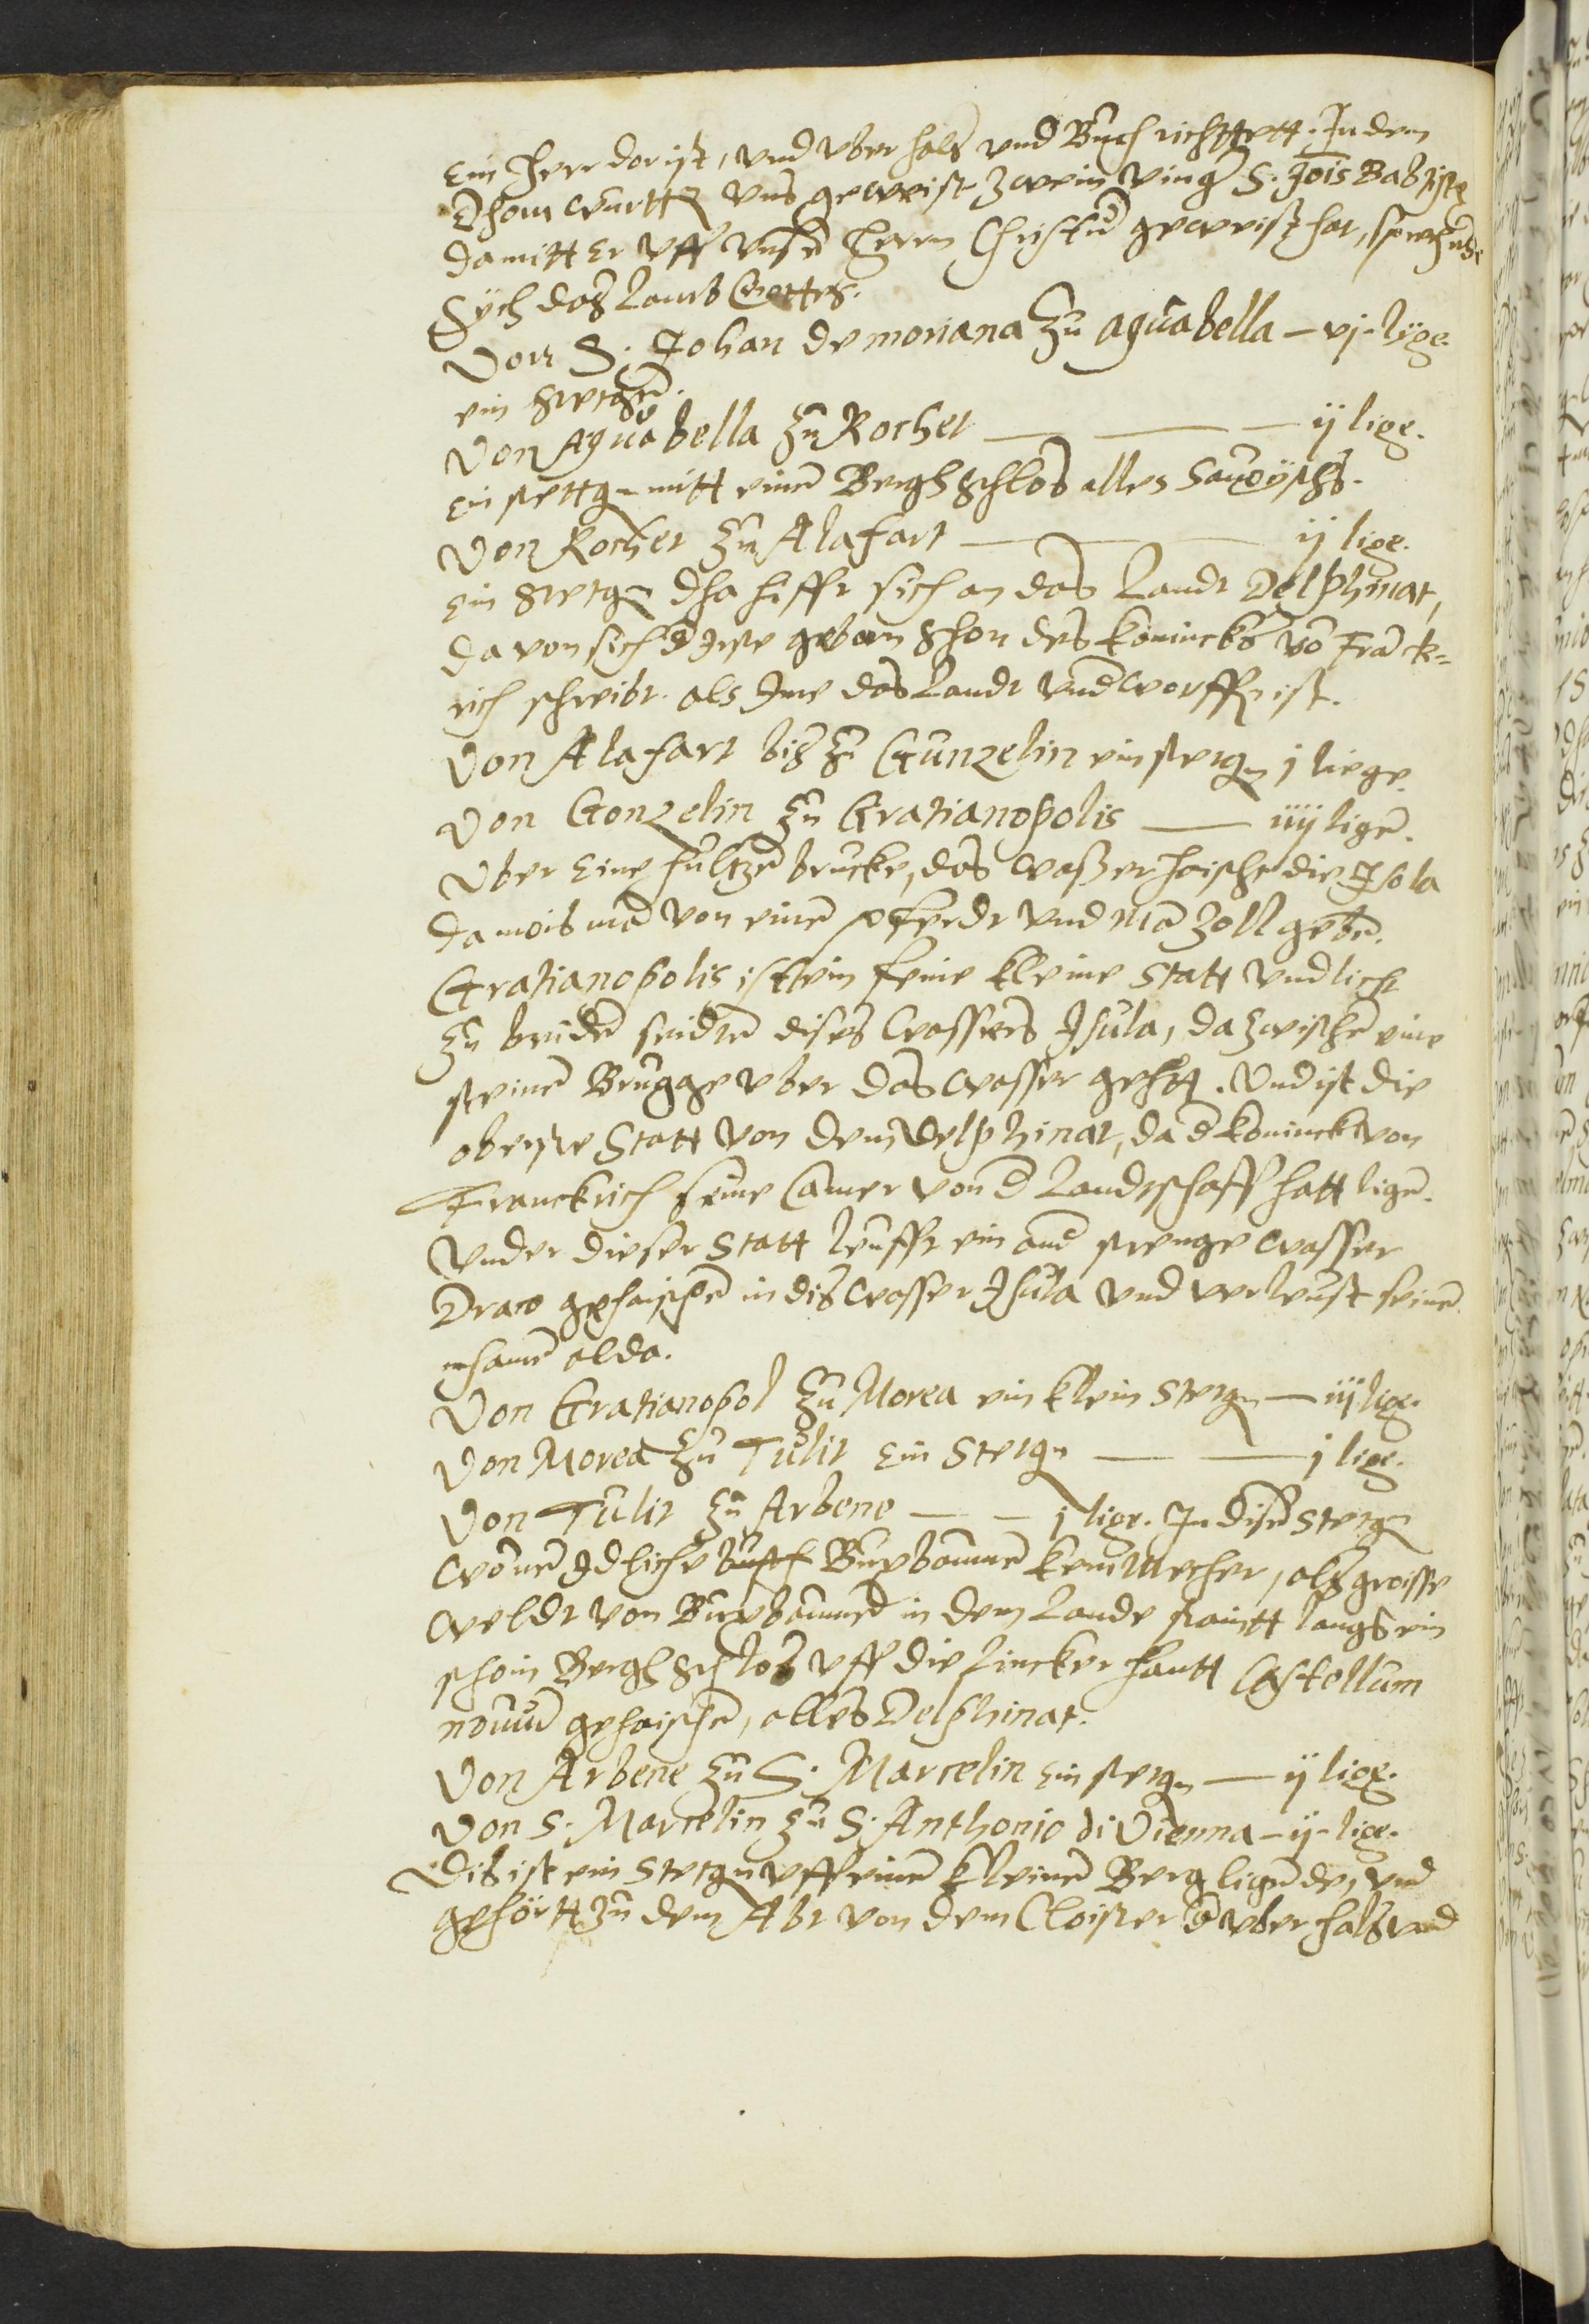 Ein Herr dor ist, und uber hals und Buch richttett. In dem
Dhom wurtt uns geweist zwein vinger S. Jois Babtiste
damitt Er uff unsen Herrn Christum geweist hat, sprechende
Sych das Lamb Gottes.
Von S. Johan de moriana zu aguabella – vj. lyge.
ein stetgen.
Von Aguabella zu Rochet — — — ij lige.
Ein stettgen mitt einem Bergh Schlos alles Savoysch.
Von Rochet zu Alafart — — ij lige.
Ein stetgen dha hefft sich an das Landt Delphinat,
da von sich d irste geboren Shon des konincks vo Franck=
rich schreibt. als Ime das Landt underworffen ist.
Von Alafart bis zu Gunzelin ein stetgen j liege.
Von Gonzelin zu Gratianopolis — iiij lige.
Uber Eine hultzen brucke, das wasser heischt die Isola
da mois ma von einem pferdt und man zoll geben.
Gratianopolis ist ein feine kleine Statt und licht
zu beiden seidten dises Wassers Isula, da zwischen eine
steinen Brugge uber das wasser gehtt. Und ist die
oberste Statt von dem Delphinat, da d koninck von
Franckrich seine Camer von d Landtschaff hatt ligen.
Under dieser Statt leufft ein and strenge wasser
Draco geheischen in dis wasser Isula und verleust seinen
nhamen alda.
Von Gratianopol zu Morea ein klein stetgen — iij lige.
Von Morea zu Tulit Ein Stetgen — — j lige.
Von Tulit zu Arbene — — j lige. In disem Stetgen
wonen Idliche Buxbaumen kemmecher, als groisse
weldt von Buxbaumen in dem Lande staintt langs ein
schoin Bergh Schlos uff die Lincker hantt Castellum
novum geheischen, alles Delphinat.
Von Arbene zu S. Marcelin Ein stetgen — ij lige.
Von S. Marcelin zu S. Anthonio di Vienna – ij – lige.
Dis ist ein Stetgen uff einem kleinen Berg ligende, und
gehörtt zu dem Abt von dem Cloister d uber hals und